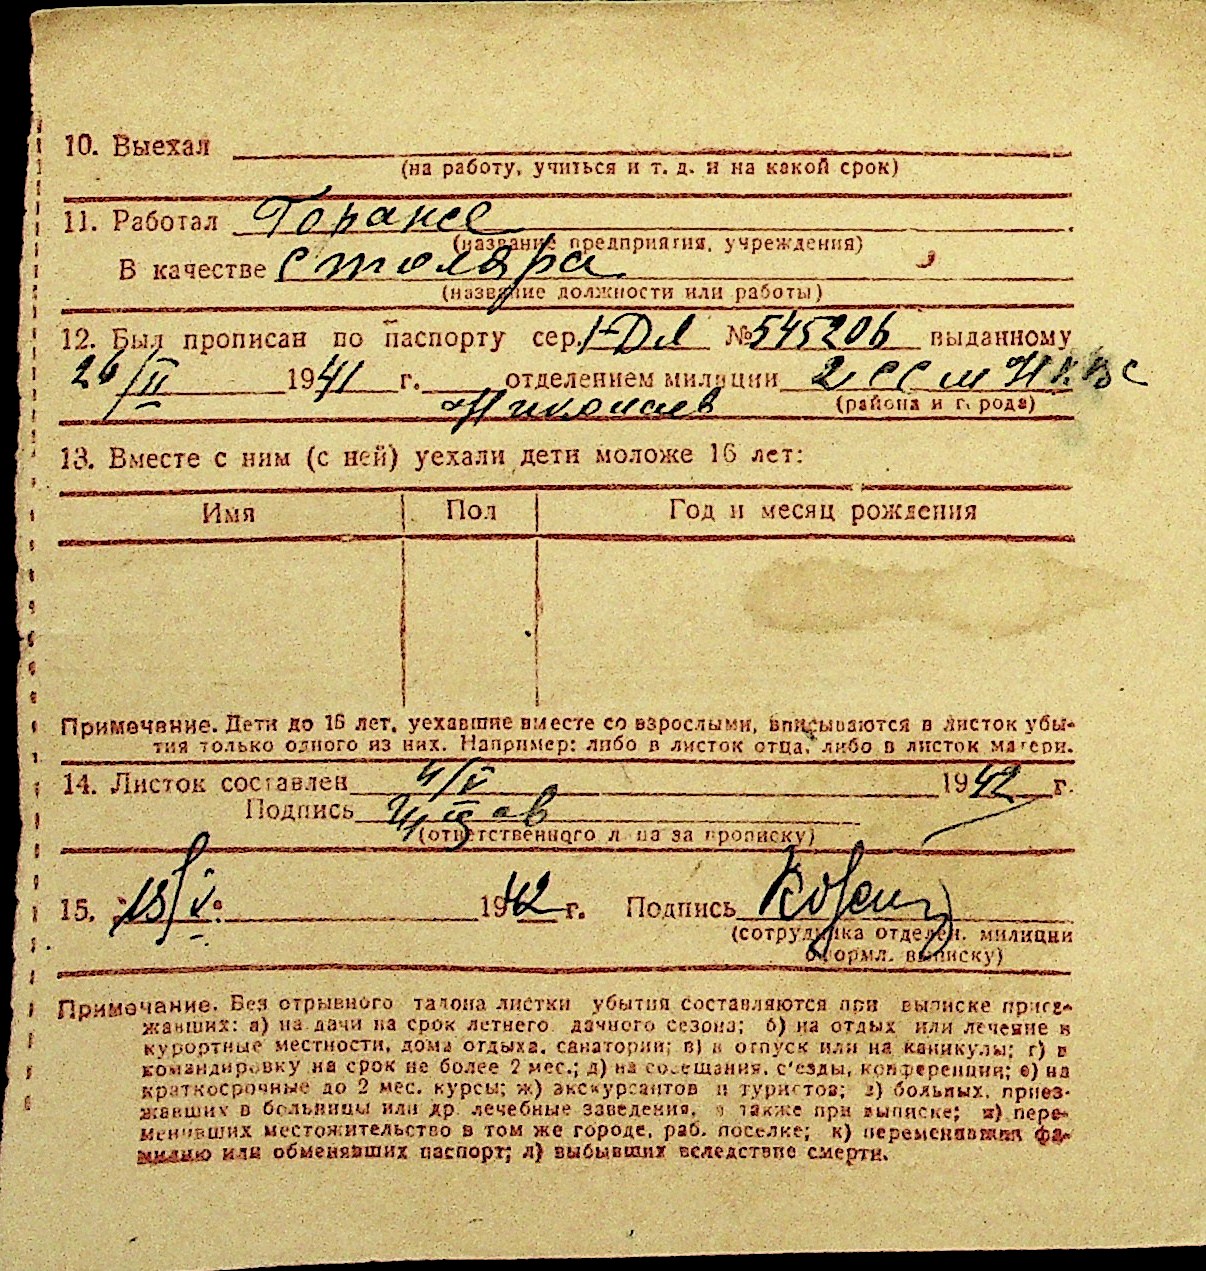 10. Выехал
(на работу, учиться и т. д. и на какой срок)
11. Работал
(название предприятия, учреждения)
В качестве столяра
(название должности или работы)
12. Был прописан по паспорту сер. I-ДЛ № 545206 выданному
26/II 1941 г. отделением милиции
Николаев (района и города)
13. Вместе с ним (с ней) уехали дети моложе 16 лет:
Имя Пол Год и месяц рождения
Примечание. Дети до 16 лет, уехавшие вместе со взрослыми, вписываются в листок убы-
тия только одного из них. Например: либо в листок отца, либо в листок матери.
14. Листок составлен 4/V 1942 г.
Подпись
(ответственного лица за прописку)
15. 13/V 1942 г. Подпись
(сотрудника отделен. милиции
оформл. выписку)
Примечание. Без отрывного талона листки убытия составляются при выписке приез-
жавших: а) на дачи на срок летнего дачного сезона; б) на отдых или лечение в
курортные местности, дома отдыха, санатории; в) в отпуск или на каникулы; г) в
командировку на срок не более 2 мес.; д) на совещания, с'езды, конференции; е) на
краткосрочные до 2 мес. курсы; ж) экскурсантов и туристов; з) больных, приез-
жавших в больницы или др. лечебные заведения, а также при выписке; и) пере-
менивших местожительство в том же городе, раб. поселке; к) переменивших фа-
милию или обменявших паспорт; л) выбывших вследствие смерти.